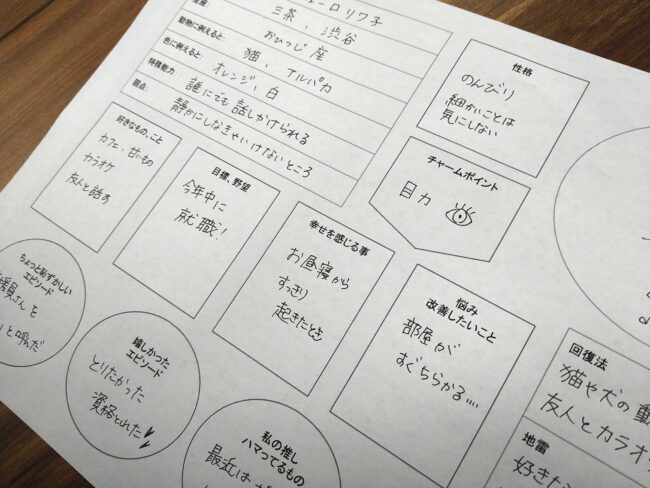 三茶、渋谷
星座:
おひつじ座
動物に例えると:
猫、アルパカ
色に例えると:
オレンジ、白
特殊能力:
誰にでも話しかけられる
弱点:
静かにしなきゃいけないところ
性格
のんびり
細かいことは
気にしない
チャームポイント
目力
好きなもの、こと
カフェ、甘いもの
カラオケ
友人と話す
目標、野望
今年中に
就職!
幸せを感じる事
お昼寝から
すっきり
起きたとき
悩み
改善したいこと
部屋が
すぐちらかる....
ちょっと恥ずかしい
エピソード
員さんを
と呼んだ
嬉しかった
エピソード
とりたかった
資格とれた
私の推し
ハマってるもの
最近は
回復法
猫や犬の動
友人とカラオ
地雷
好きな